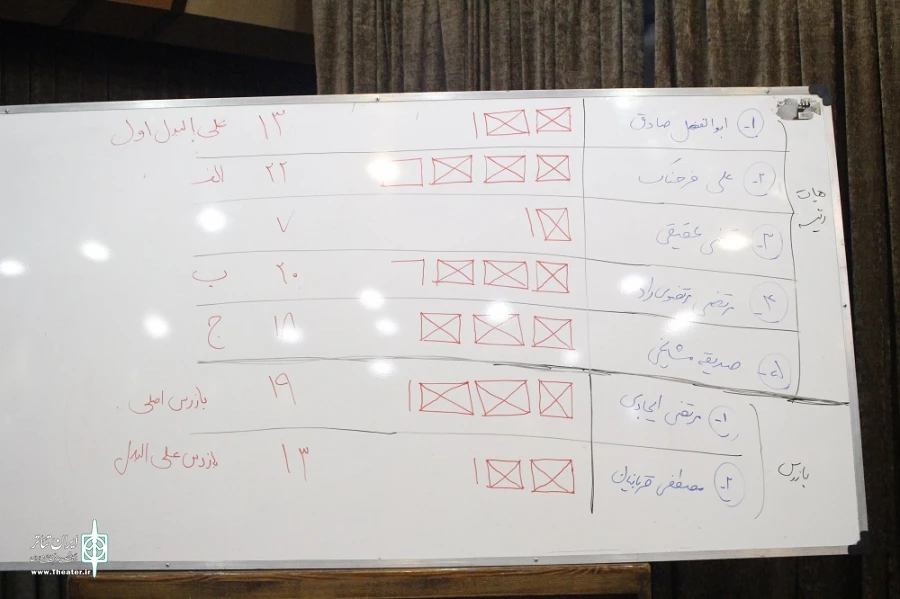 هیات رئیسه
۱- ابوالفضل صادقی ۱۳ علی البدل اول
۲- علی فرحناک ۲۲ الف
۳- حقیقی ۷
۴- مرتضی مرتضوی راد ۲۰ ب
۵- صدیقه مشایخی ۱۸ ج
بازرس
۱- مرتضی ایجادی ۱۹ بازرس اصلی
۲- مصطفی قربانیان ۱۳ بازرس علی البدل
ایران تئاتر
www.Theater.ir